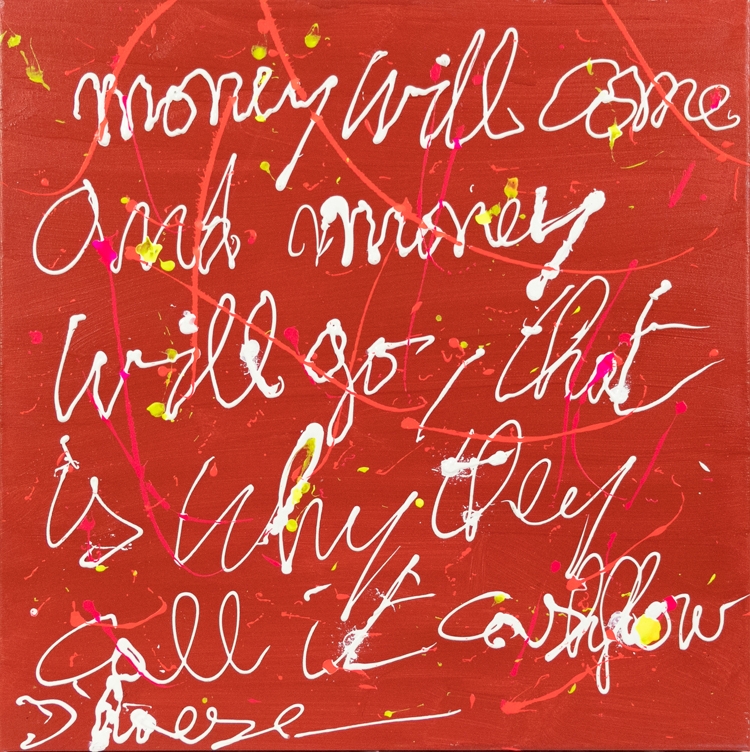 money will come
and money
will go, that
is why they
call it cashflow